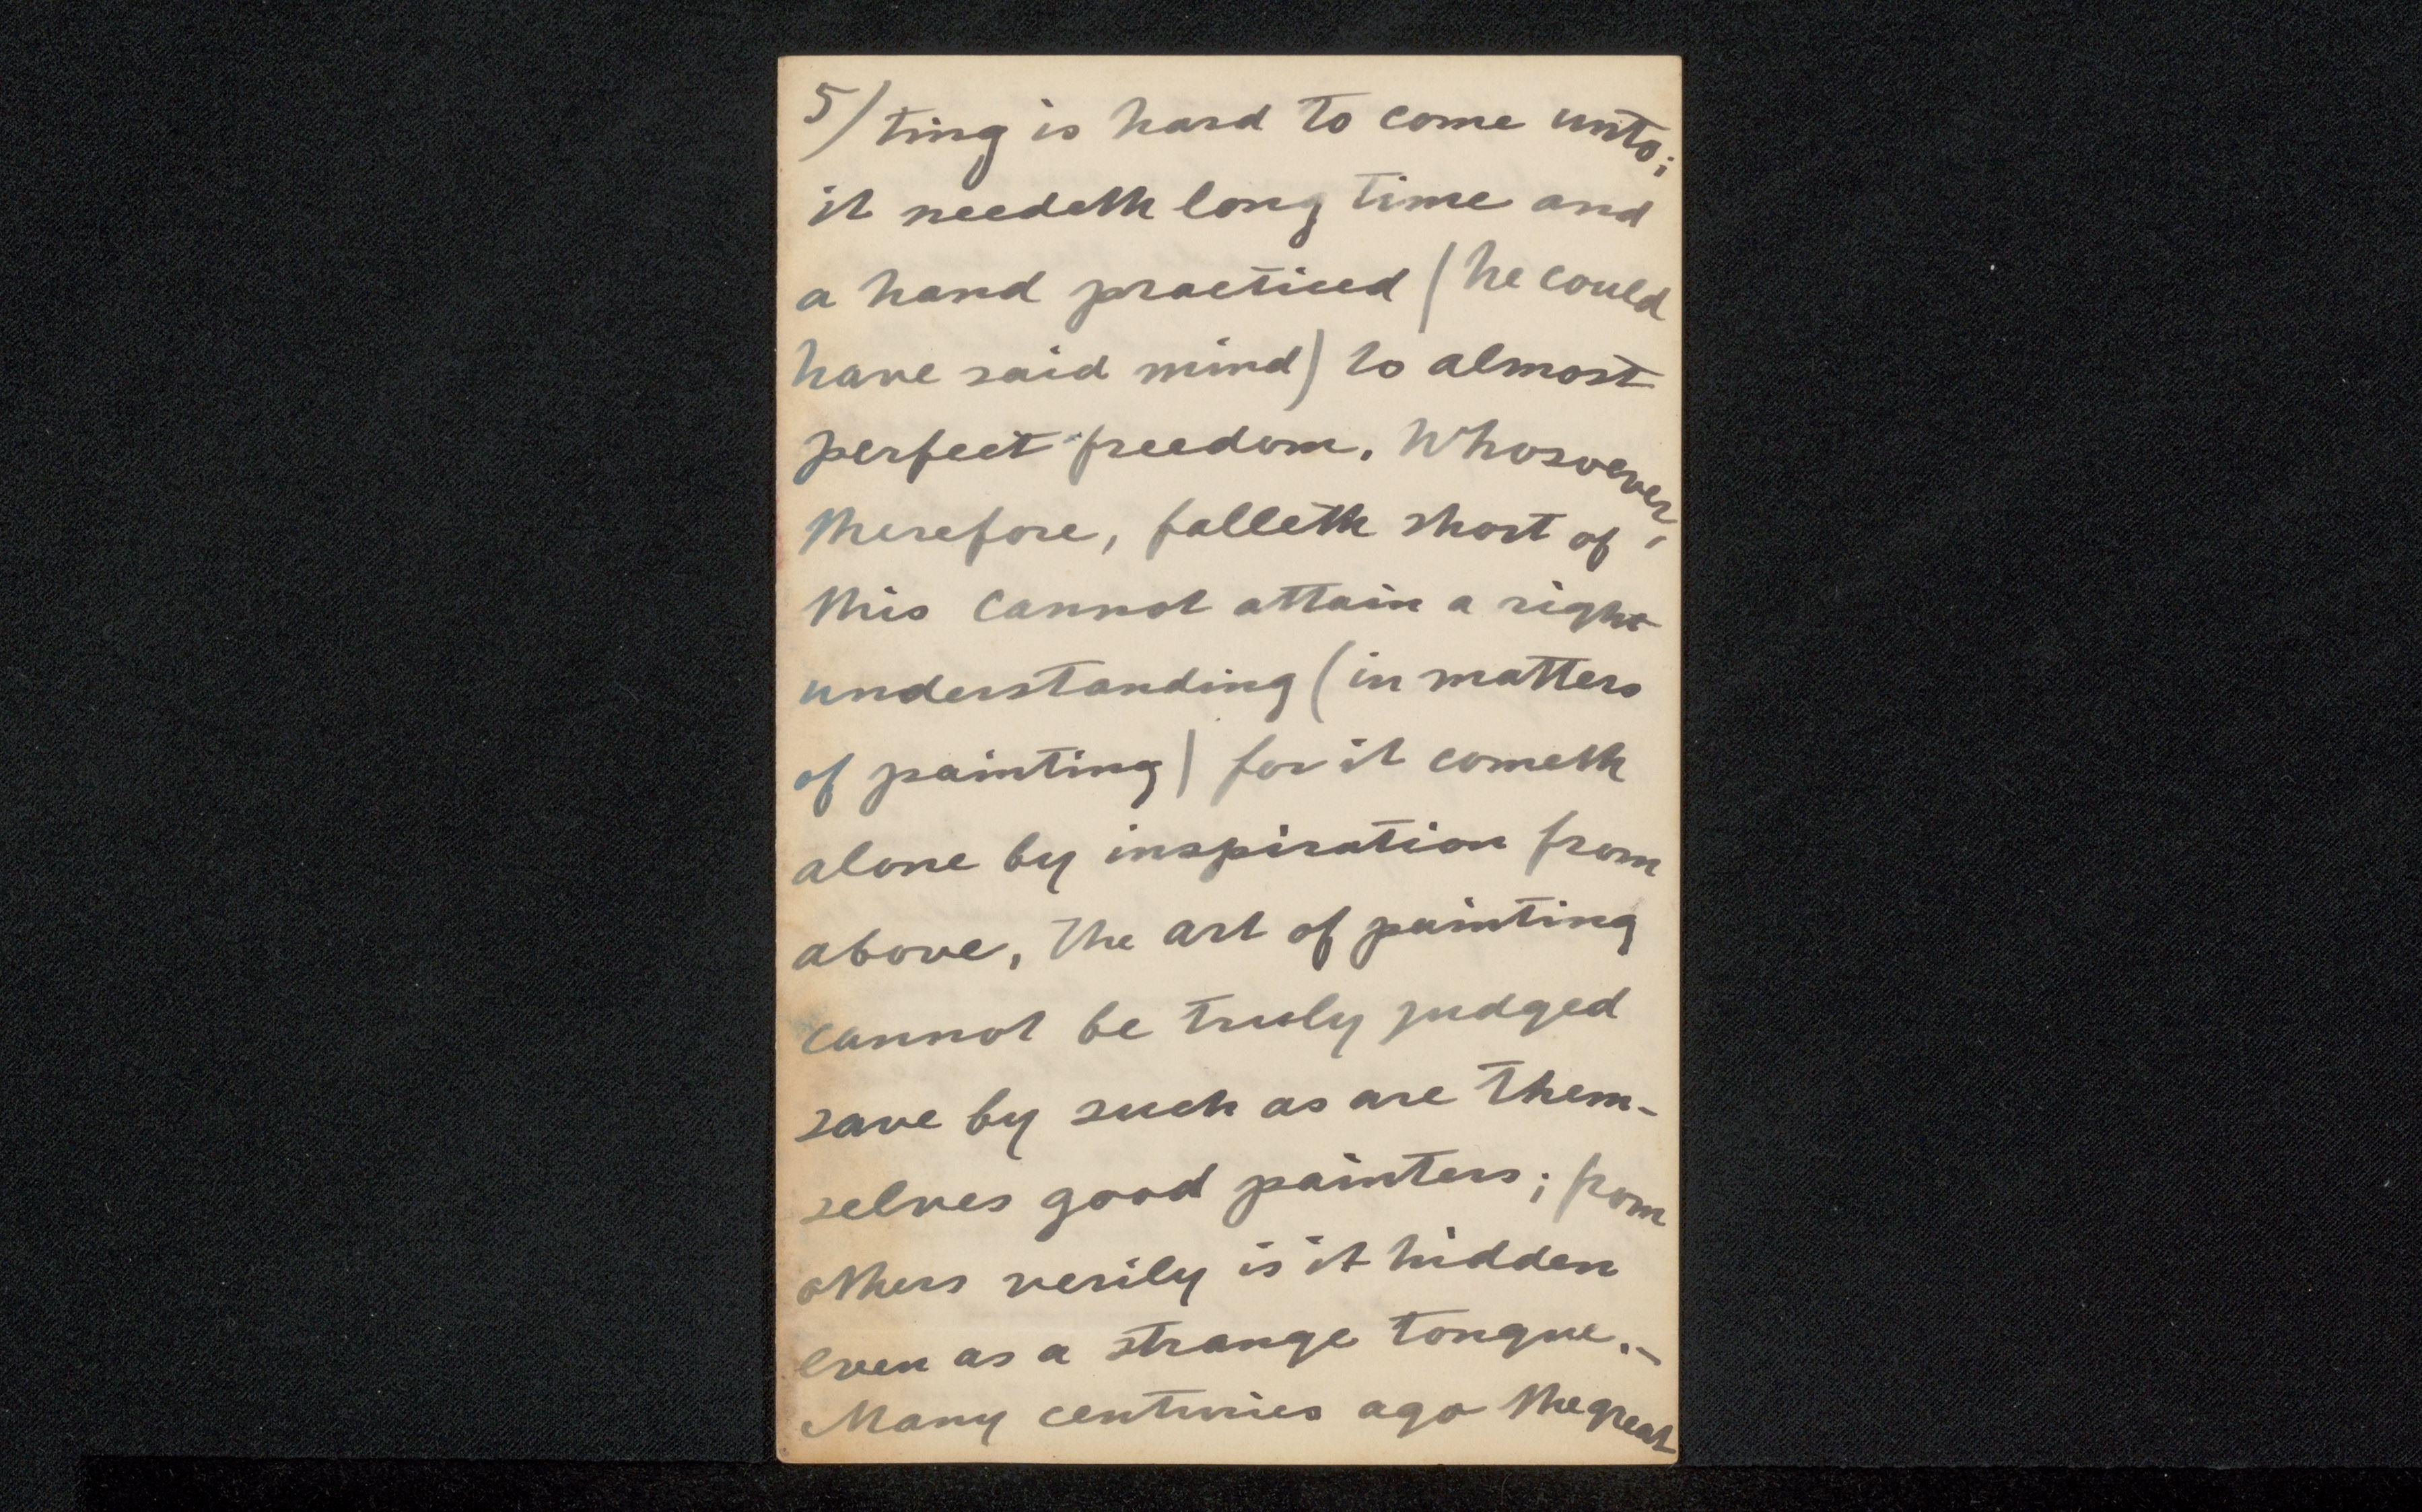 5/ ting is hard to come unto;
it needeth long time and
a hand practiced (he could
have said mind) to almost
perfect freedom. Whosoever,
therefore, falleth short of
this cannot attain a right
understanding (in matters
of painting) for it cometh
alone by inspiration from
above. The art of painting
cannot be truly judged
save by such as are them-
selves good painters; from
others verily is it hidden
even as a strange tongue.-
Many centuries ago the great